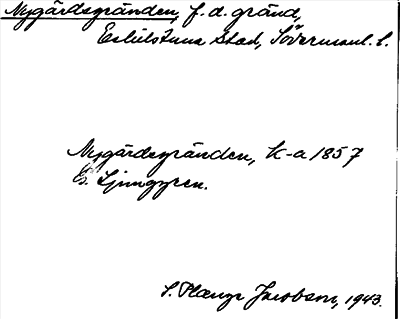 Nygårdsgränden, f. d. gränd,
Eskilstuna Stad, Södermanl. l.
Nygårdsgränden, k-a 1857
E. Ljunggren.
S. Jacobson, 1943.